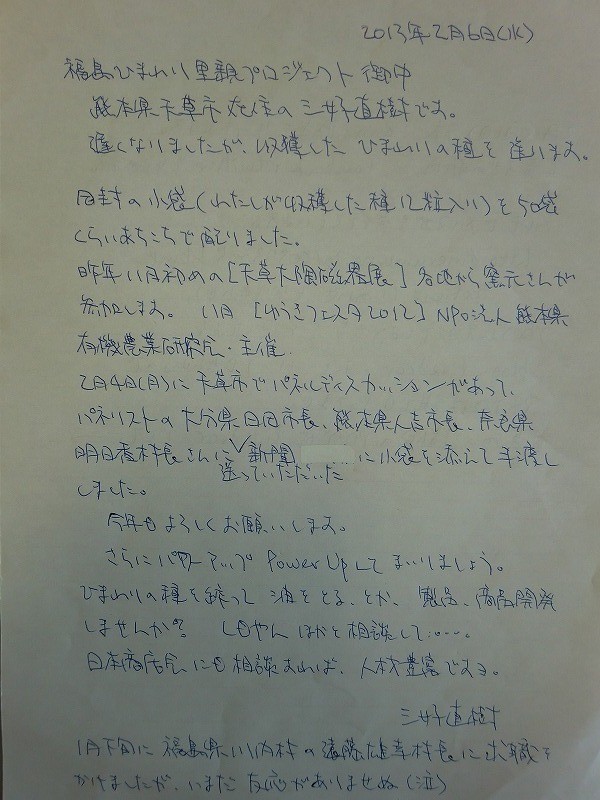 2013年2月6日(水)
福島ひまわり里親プロジェクト 御中
熊本県天草市在住の 三好直樹です。
遅くなりましたが、収穫した ひまわりの種を 送ります。
同封の小袋(わたしが収穫した種12粒入り)を50袋
くらいあちこちで配りました。
昨年11月初めの[天草大陶磁器展]各地から窯元さんが
参加します。 11月 [ゆうきフェスタ2012] NPO法人熊本県
有機農業研究会・主催
2月4日(月)に天草市でパネルディスカッションがあって、
パネリストの大分県臼杵市長、熊本県人吉市長、奈良県
明日香村長さんに 新聞 ……に小袋を添えて手渡し
送っていただいた
しました。
今年もよろしくお願いします。
さらにパワーアップ Power Up してまいりましょう。
ひまわりの種を絞って 油をとる、とか、製品、商品開発
しませんか? ほかと相談して……。
日本商店会にも相談すれば、人材豊富です。
三好直樹
1月下旬に福島県川内村の遠藤雄幸村長に求職を
かけましたが、いまだ反応がありませぬ(泣)